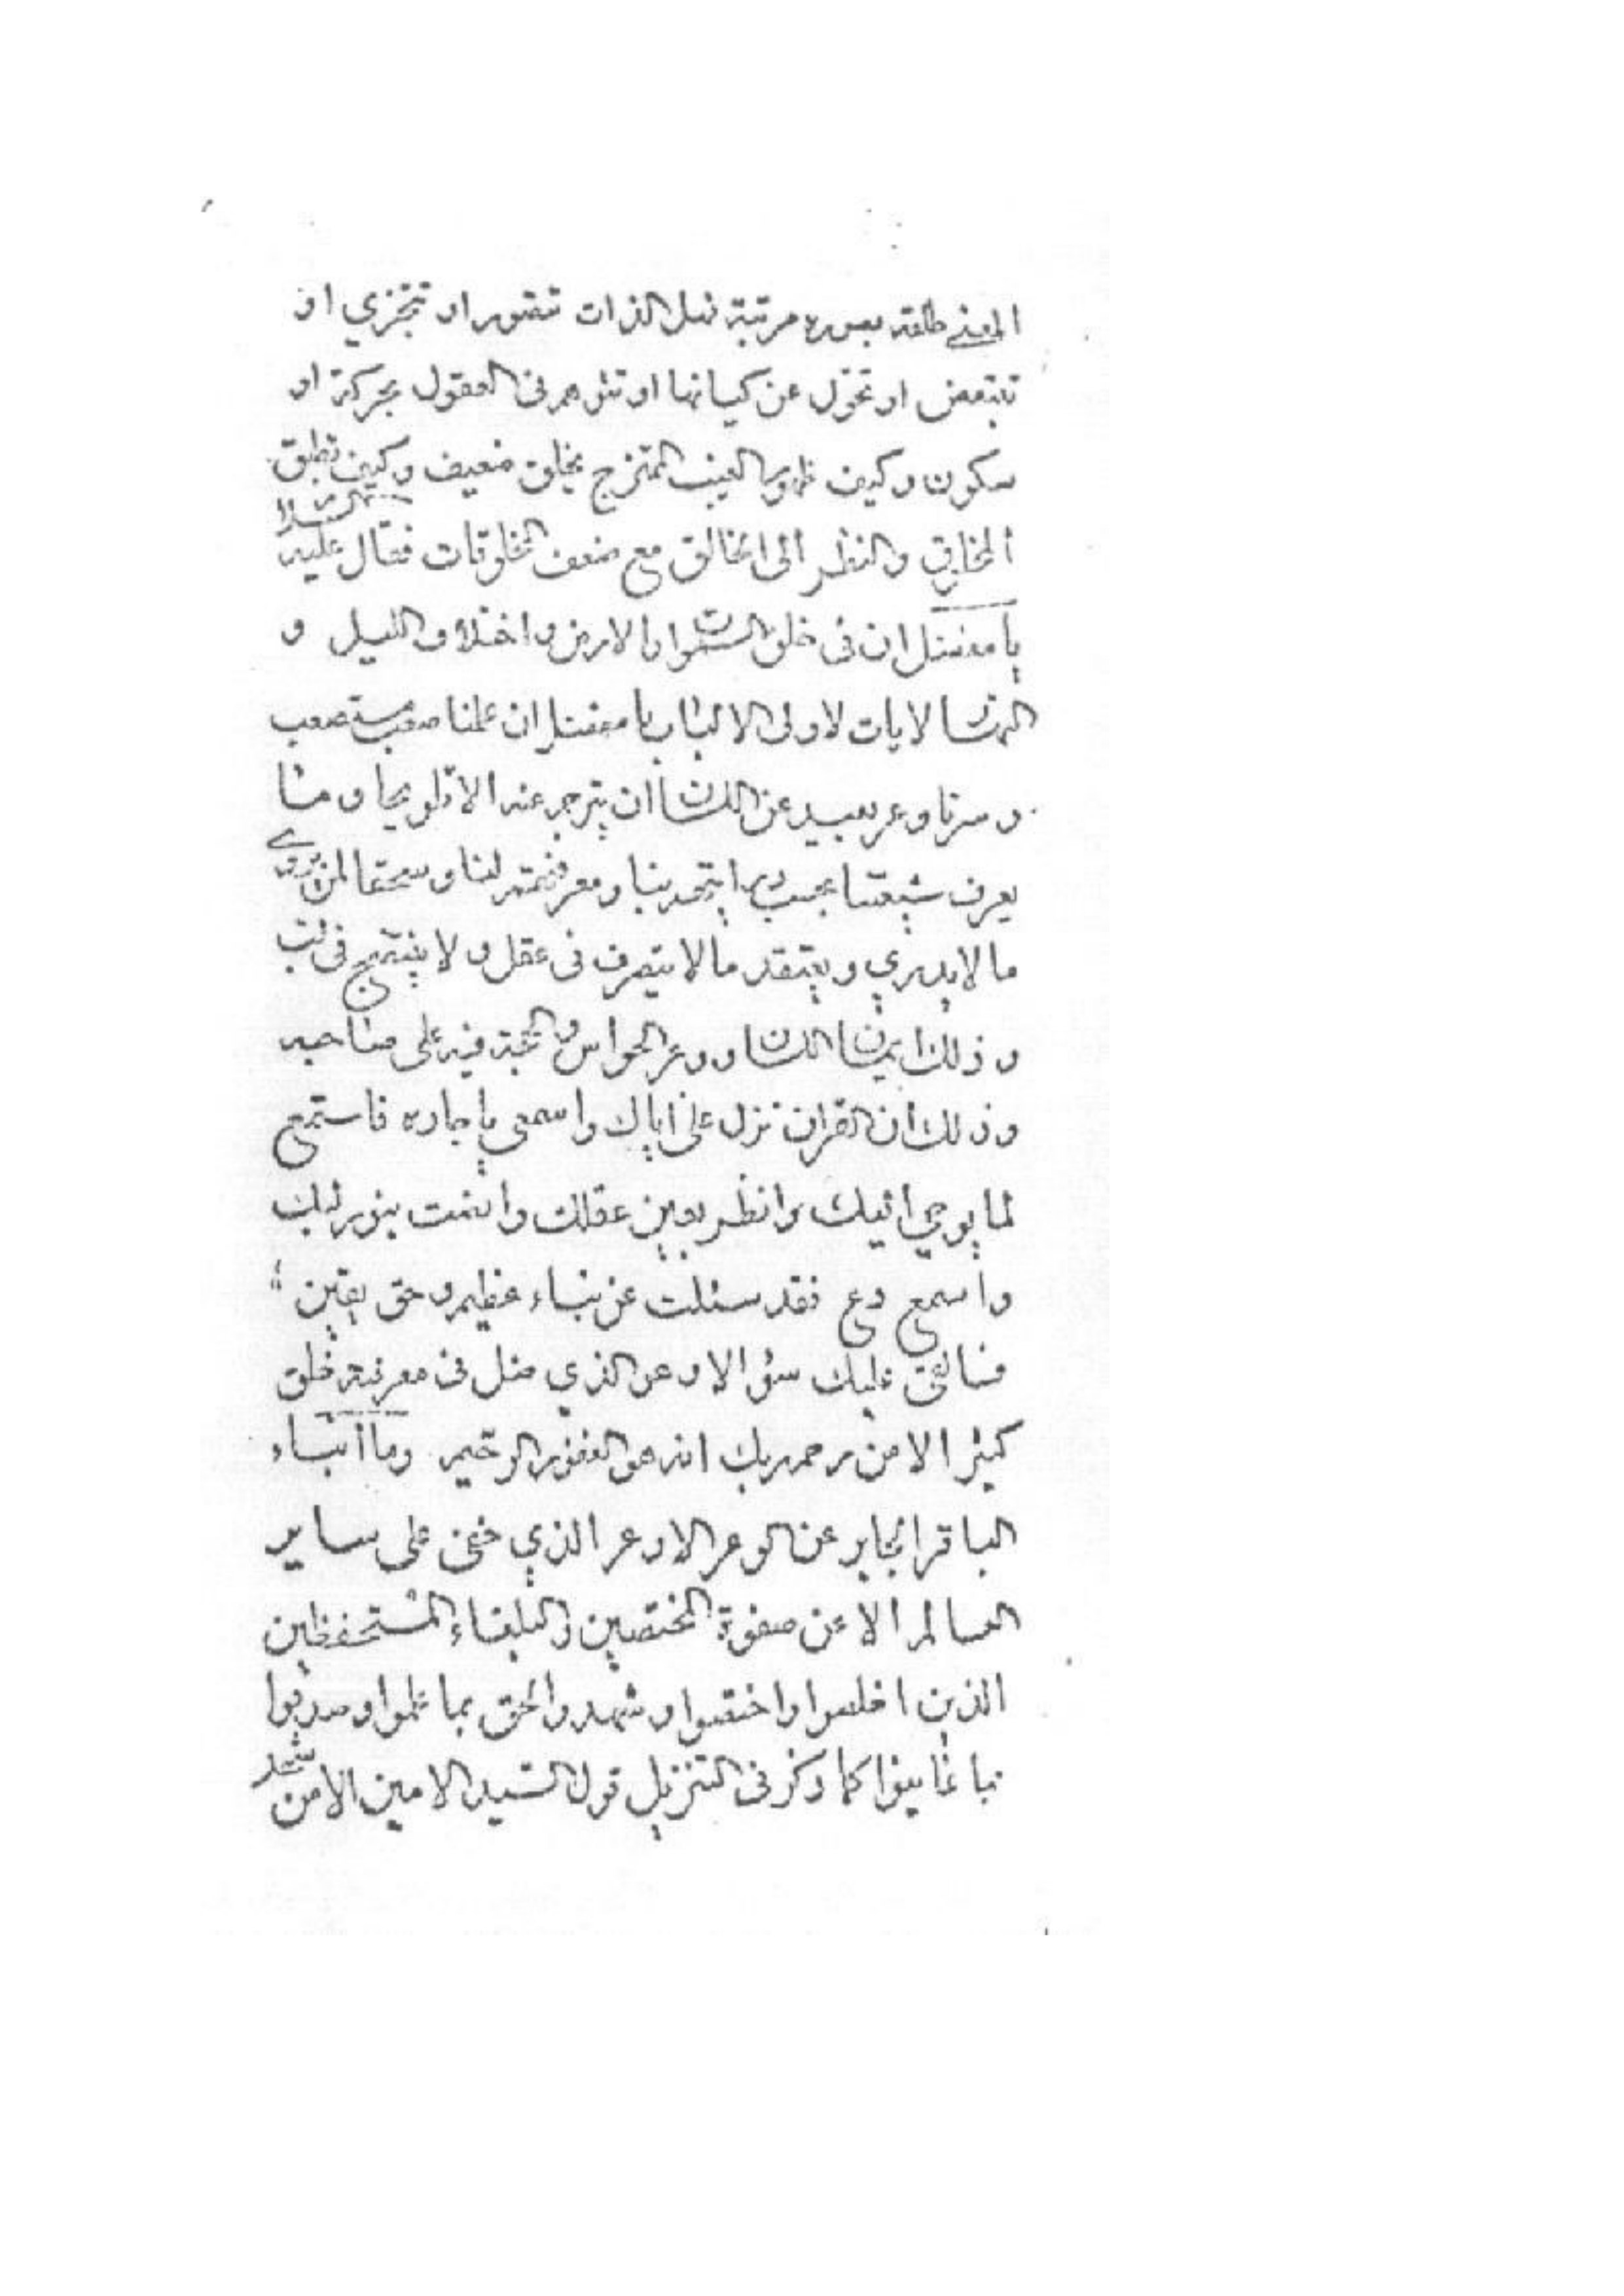 المعنى طلعته بصوره مرتبة فهل الذات تتصور او تتجزي او
تتبعض او تحول عن كيانها او تتوهم فى العقول بحركة او
سكون وكيف ظهور الغيب الممتزج بخلق ضعيف وكيف تطيق
المخلوق والنظر الى الخالق مع ضعف المخلوقات فقال عليه السلام
يا مفضل ان فى خلق السموات والارض واختلاف الليل و
النهار لايات لاولى الالباب يا مفضل ان علمنا صعب مستصعب
وسرنا وعر بعيد عن اللسان ان يترجم عنه الا تلويحا وما
يعرف شيعتنا بحسب درايتهم بنا ومعرفتهم لنا وسحقا لمن يروي
ما لا يدري ويعتقد ما لا يتصرف فى عقل ولا ينتهج فى لب
وذلك ايمان اللسان ووعر الحواس والحجة فيه على صاحبه
وذلك ان القران نزل على اياك واسمعى يا جاره فاستمع
لما يوحي اليك وانظر بعين عقلك وانصت بنور لبك
واسمع وع فقد سئلت عن نباء عظيم وحق يقين
فسالقى عليك سؤالا وعن الذي ضل فى معرفته خلق
كثير الا من رحم ربك انه هو الغفور الرحيم وما انباء
الباقر لجابر عن الوعر الاوعر الذي خفى على ساير
العالم الا عن صفوة المختصين والبلغاء المستحفظين
الذين اخلصوا واختصوا وشهدوا الحق بما علموا وصدقوا
بما عاينوا كما ذكر فى التنزيل قول السيد الامين الا من شهد